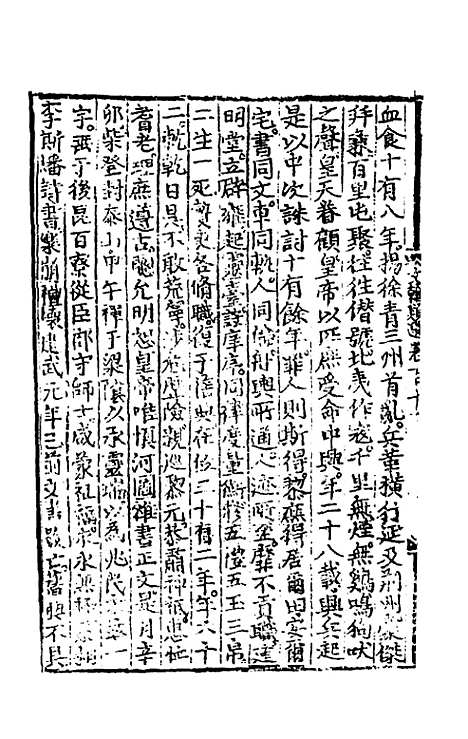 血食十有八年。揚徐青三州首亂。兵革橫行延及荊州豪傑
并兼百里屯聚往往僭號北夷作寇。千里無煙無鷄鳴狗吠
之聲皇天眷顧皇帝以匹庶受命中興。年二十八載興兵起
是以中次誅討十有餘年。罪人則斯得黎庶得居爾田安爾
宅。書同文。車同軌。人同倫舟輿所通人迹所至。靡不貢職建
明堂立辟雍起靈臺設庠序。同律度量衡修五禮五玉三帛
二牲一死贄吏各脩職。復于舊典在位三十有二年。年六十
二。乾乾日昃不敢荒寧。涉危歷險親巡黎元恭肅神祇惠恤
耆老理庶遵古聰允明恕皇帝唯慎河圖雒書正文是月辛
卯柴登封泰山甲午禪于梁陰以承靈瑞以為兆民永茲一
宇。垂于後昆百寮從臣郡守師士咸蒙祉福永永無極秦相
李斯燔詩書樂崩禮壞建武元年已前文書散亡舊典不具